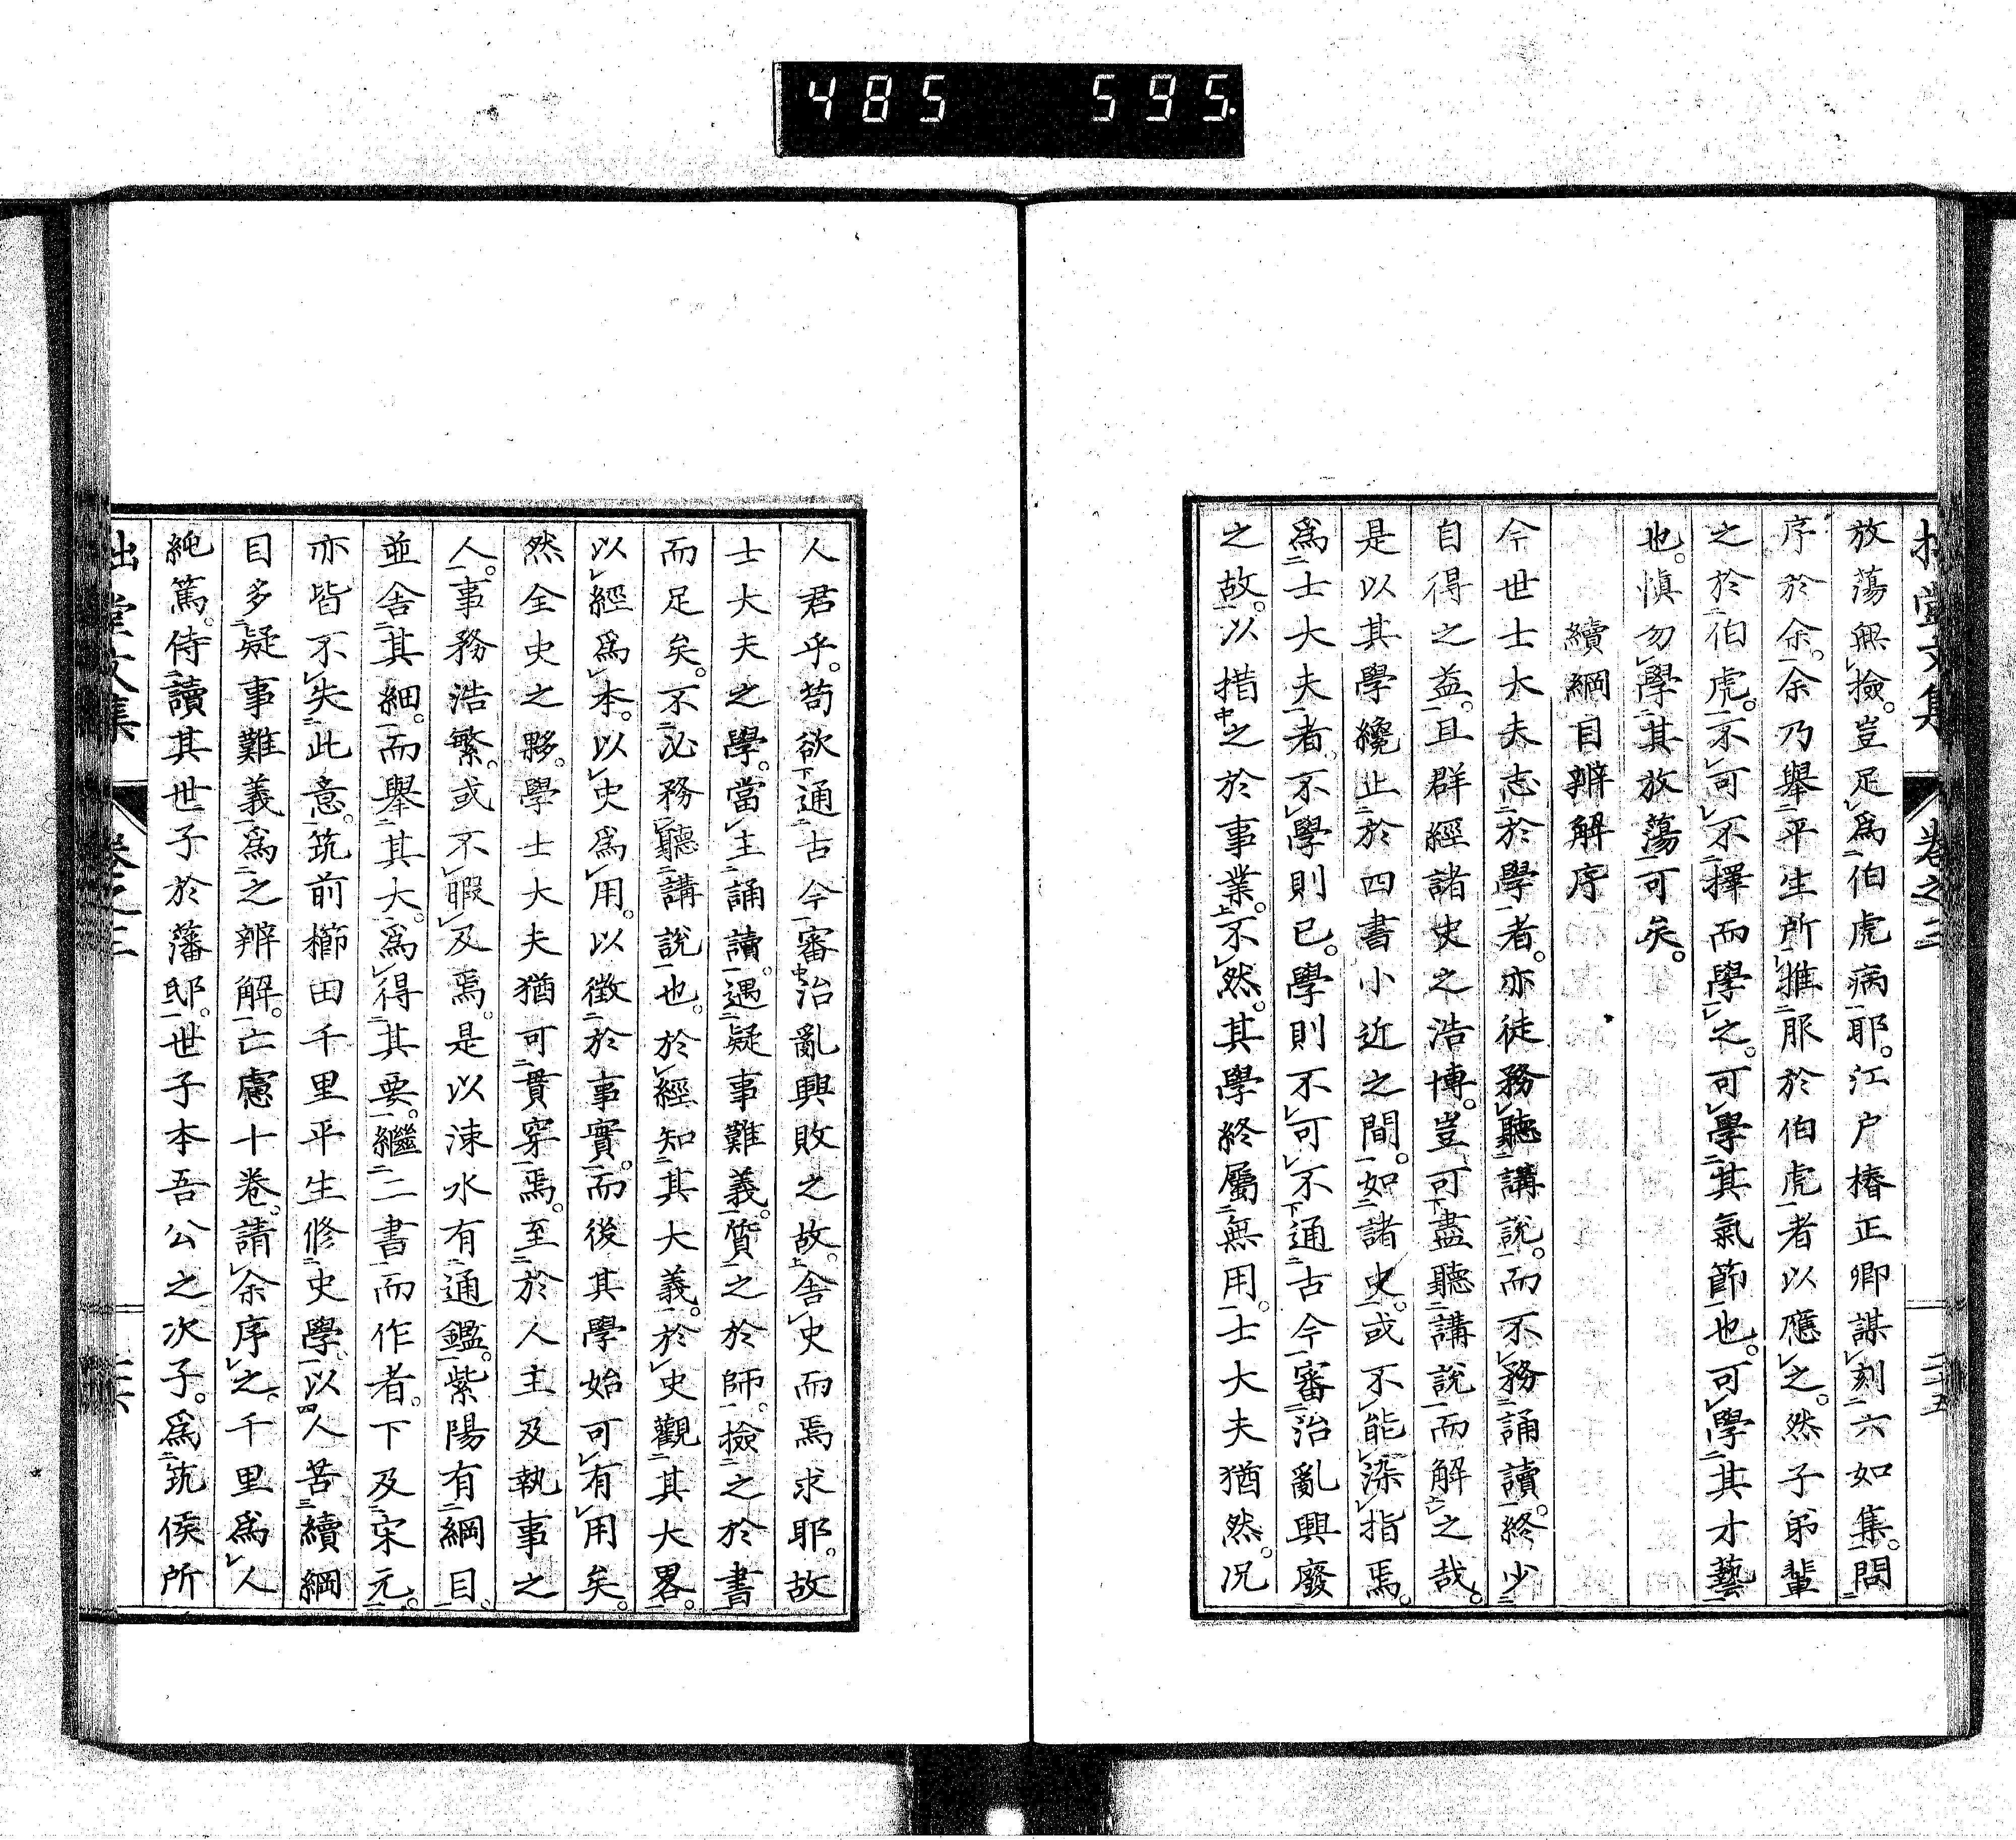 485 595.
拙堂文集 卷之三 二十五
放蕩無檢。豈足爲伯虎病耶。江戸椿正卿謀刻六如集。問
序於余。余乃擧平生所雅服於伯虎者以應之。然子弟輩
之於伯虎。不可不擇而學之。可學其氣節也。可學其才藝
也。愼勿學其放蕩可矣。
續綱目辨解序
今世士大夫志於學者。亦徒務聽講說。而不務誦讀。終少
自得之益。且群經諸史之浩博。豈可盡聽講說而解之哉。
是以其學纔止於四書小近之間。如諸史。或不能染指焉。
爲士大夫者。不學則已。學則不可不通古今審治亂興廢
之故。以措之於事業。不然。其學終屬無用。士大夫猶然。况
人君乎。苟欲通古今審治亂興敗之故。舍史而焉求耶。故
士大夫之學。當主誦讀。遇疑事難義。質之於師。撿之於書
而足矣。不必務聽講說也。於經知其大義。於史觀其大畧。
以經爲本。以史爲用。以徵於事實。而後其學始可有用矣。
然全史之夥。學士大夫猶可貫穿焉。至於人主及執事之
人。事務浩繁。或不暇及焉。是以涑水有通鑑。紫陽有綱目。
並舍其細。而擧其大。爲得其要。繼二書而作者。下及宋元。
亦皆不失此意。筑前櫛田千里平生修史學。以人苦續綱
目多疑事難義。爲之辨解。亡慮十卷。請余序之。千里爲人
純篤。侍讀其世子於藩邸。世子本吾公之次子。爲筑侯所
拙堂文集 卷之三